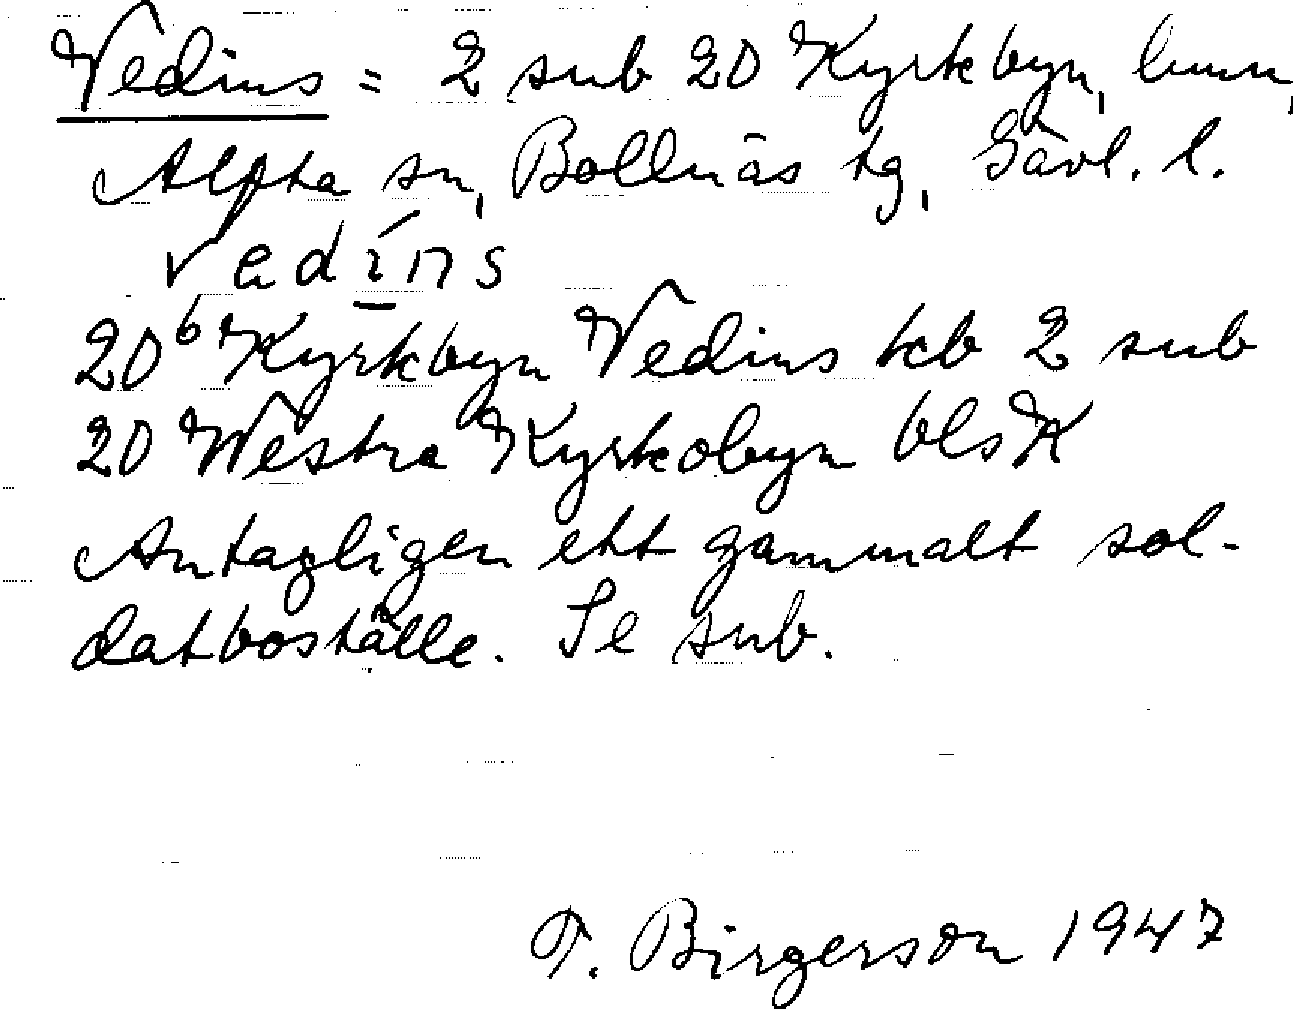 Vedins = 2 sub 20 Kyrkbyn,
Alfta sn, Bollnäs tg, Gävl. l.
vedins
20b Kyrkbyn Vedins kb 2 sub
20 Westra Kyrkobyn blsK
Antagligen ett gammalt sol-
datboställe. Se sub.
T. Birgerson 1947